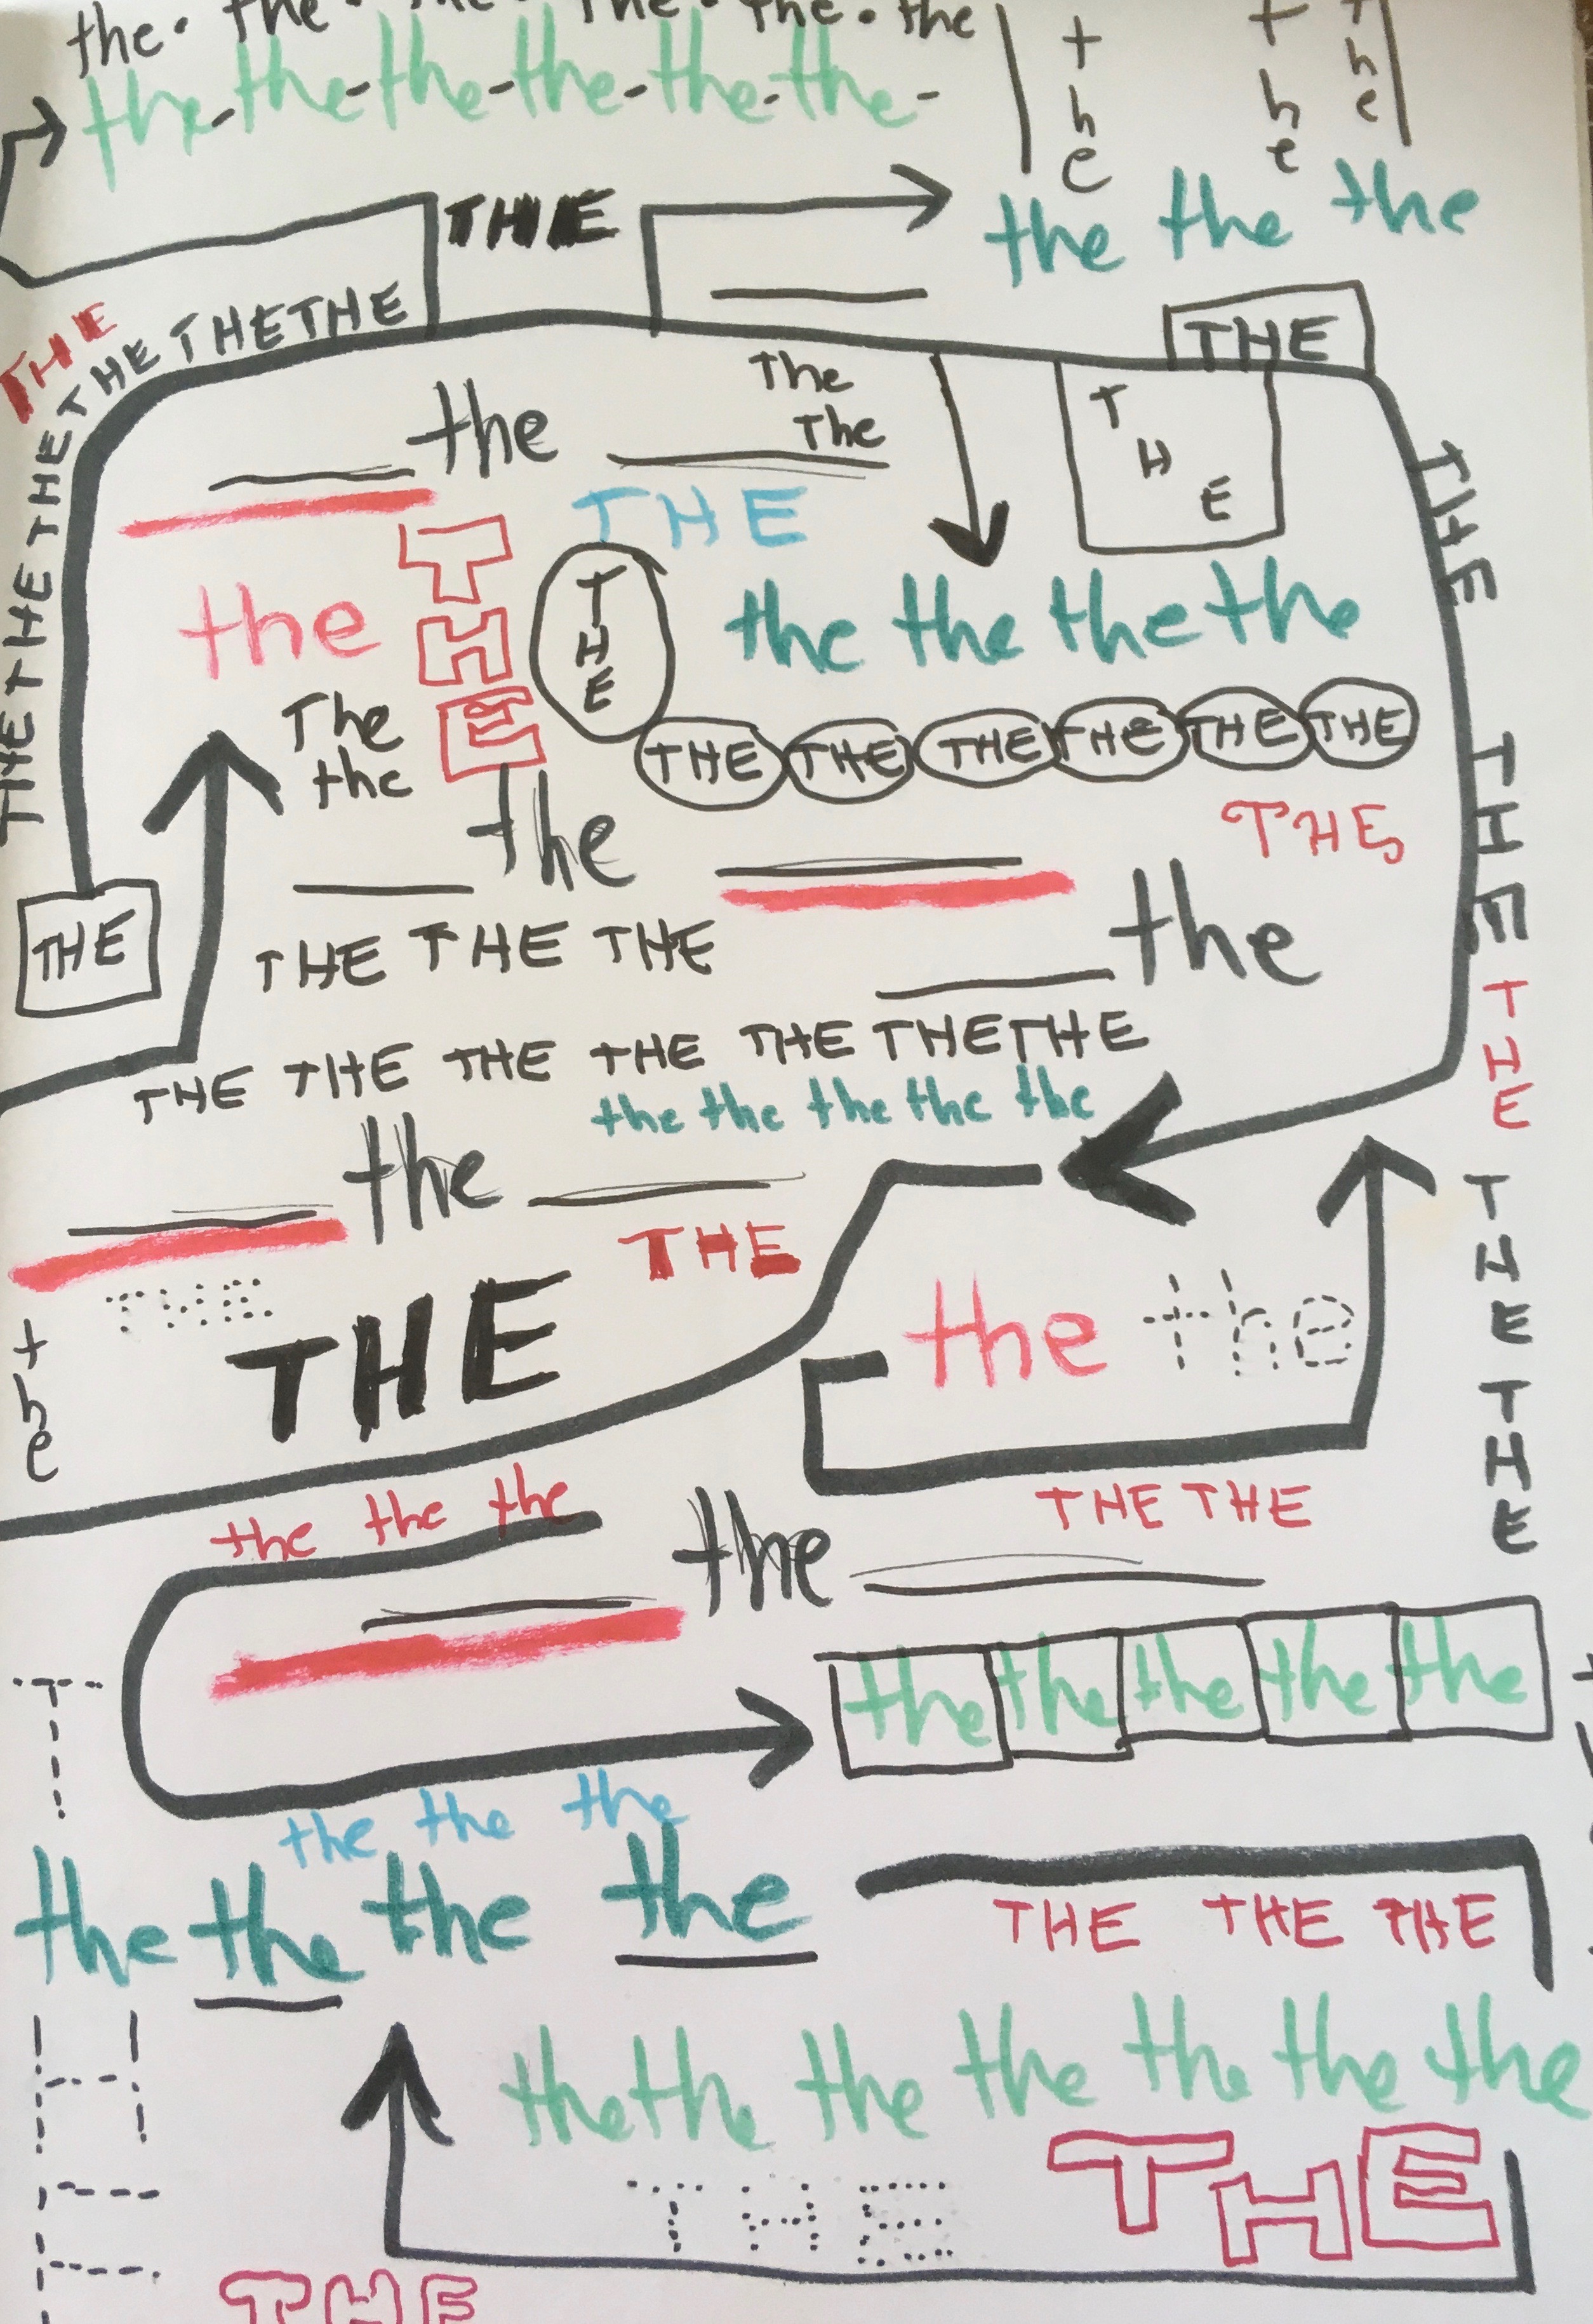 the. the. the. the. the. the. the
the-the-the-the-the-the-
the
the
the
THE
the the the
THE
THE THE THE THE THE THE THE THE
THE
THE
the
The
The
THE
THE
THE
the
THE
THE
the the the the
The
the
THE THE THE THE THE THE
THE
the
THE
THE
THE THE THE
the
THE
THE THE THE THE THE THE THE
the the the the the
the
THE
THE
THE
the
THE
the the
THE
THE
the the the
the
THE THE
the the the the the
the the the
the the the the
THE THE THE
the the the the the the the
THE
THE
THE
THE